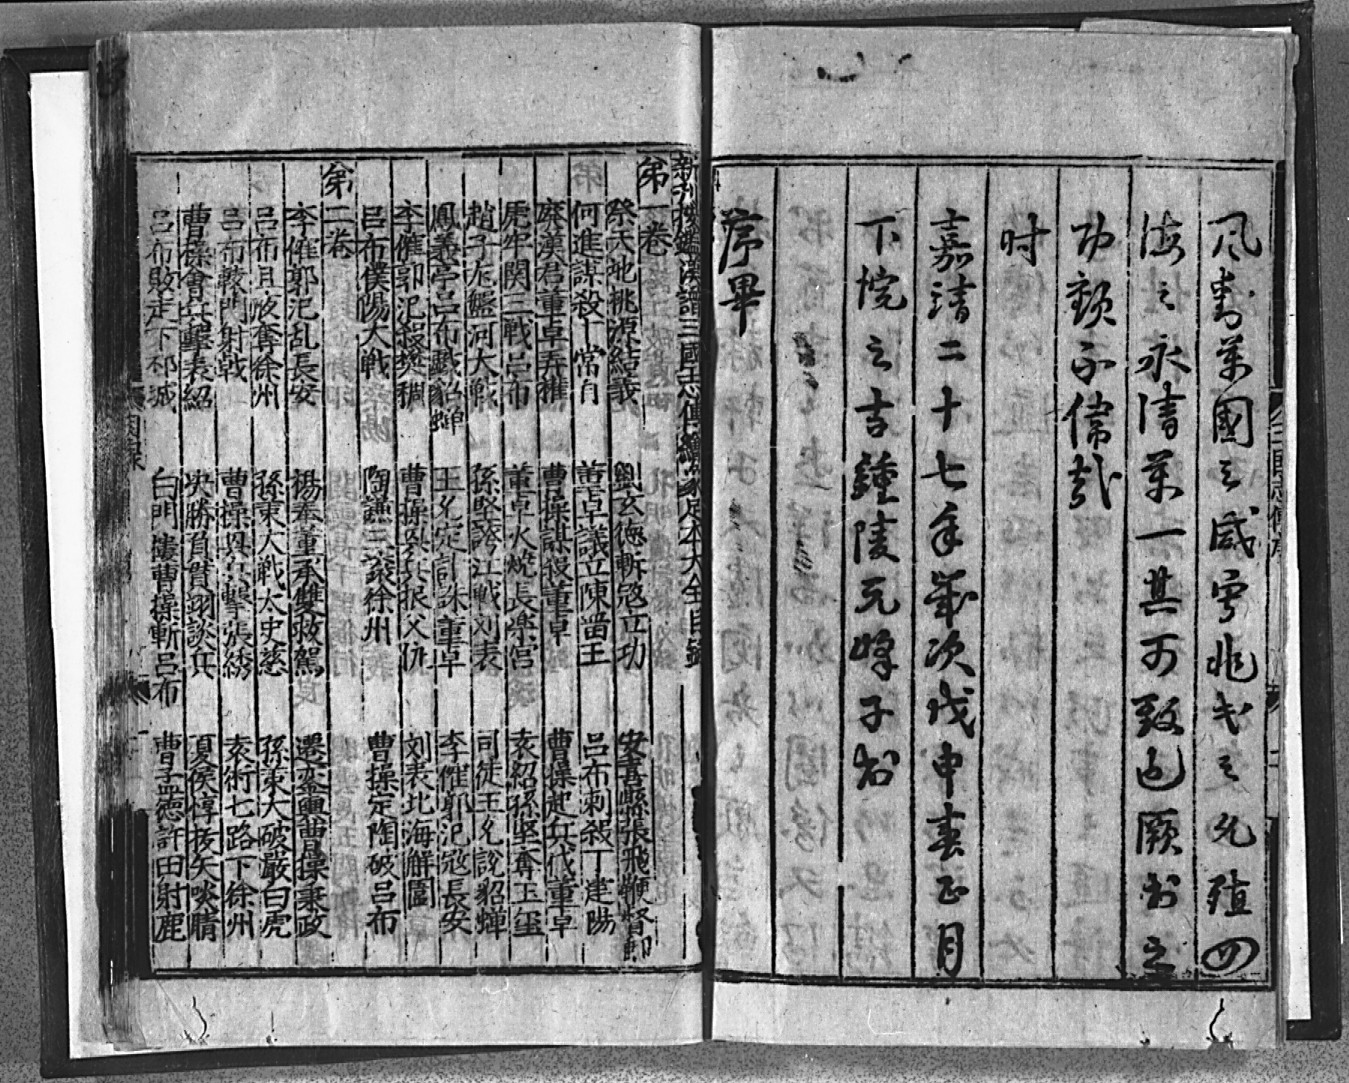 風動萬國之咸寧兆民之允殖四
海之永清萬一其可致也厥書之
功顧不偉哉
时
嘉靖二十七年歲次戊申春正月
下浣之吉鍾陵元峰子書
序畢
新刊按鑑漢譜三國志傳繪象足本大全目錄
第一卷
祭天地桃源結義 劉玄德斬寇立功 安喜縣張飛鞭督郵
何進謀殺十常侍 董卓議立陳留王 呂布刺殺丁建陽
廢漢君董卓弄權 曹操謀殺董卓 曹操起兵伐董卓
虎牢関三戰呂布 董卓火燒長樂宮 袁紹孫堅奪玉璽
趙子龙盤河大戰 孫堅跨江戰刘表 司徒王允說貂蟬
鳳義亭呂布戲貂蟬 王允定計誅董卓 李傕郭汜寇長安
李傕郭汜殺樊稠 曹操興兵报父仇 刘表北海解圍
呂布濮陽大戰 陶謙三讓徐州 曹操定陶破呂布
第二卷
李傕郭汜乱長安 楊奉董承雙救駕 遷鑾輿曹操秉政
呂布月夜奪徐州 孫策大戰太史慈 孫策大破嚴白虎
呂布轅門射戟 曹操興兵擊張綉 袁術七路下徐州
曹操會兵擊袁紹 决勝負賈詡談兵 夏侯惇拔矢啖睛
呂布敗走下邳城 白門樓曹操斬呂布 曹孟德許田射鹿